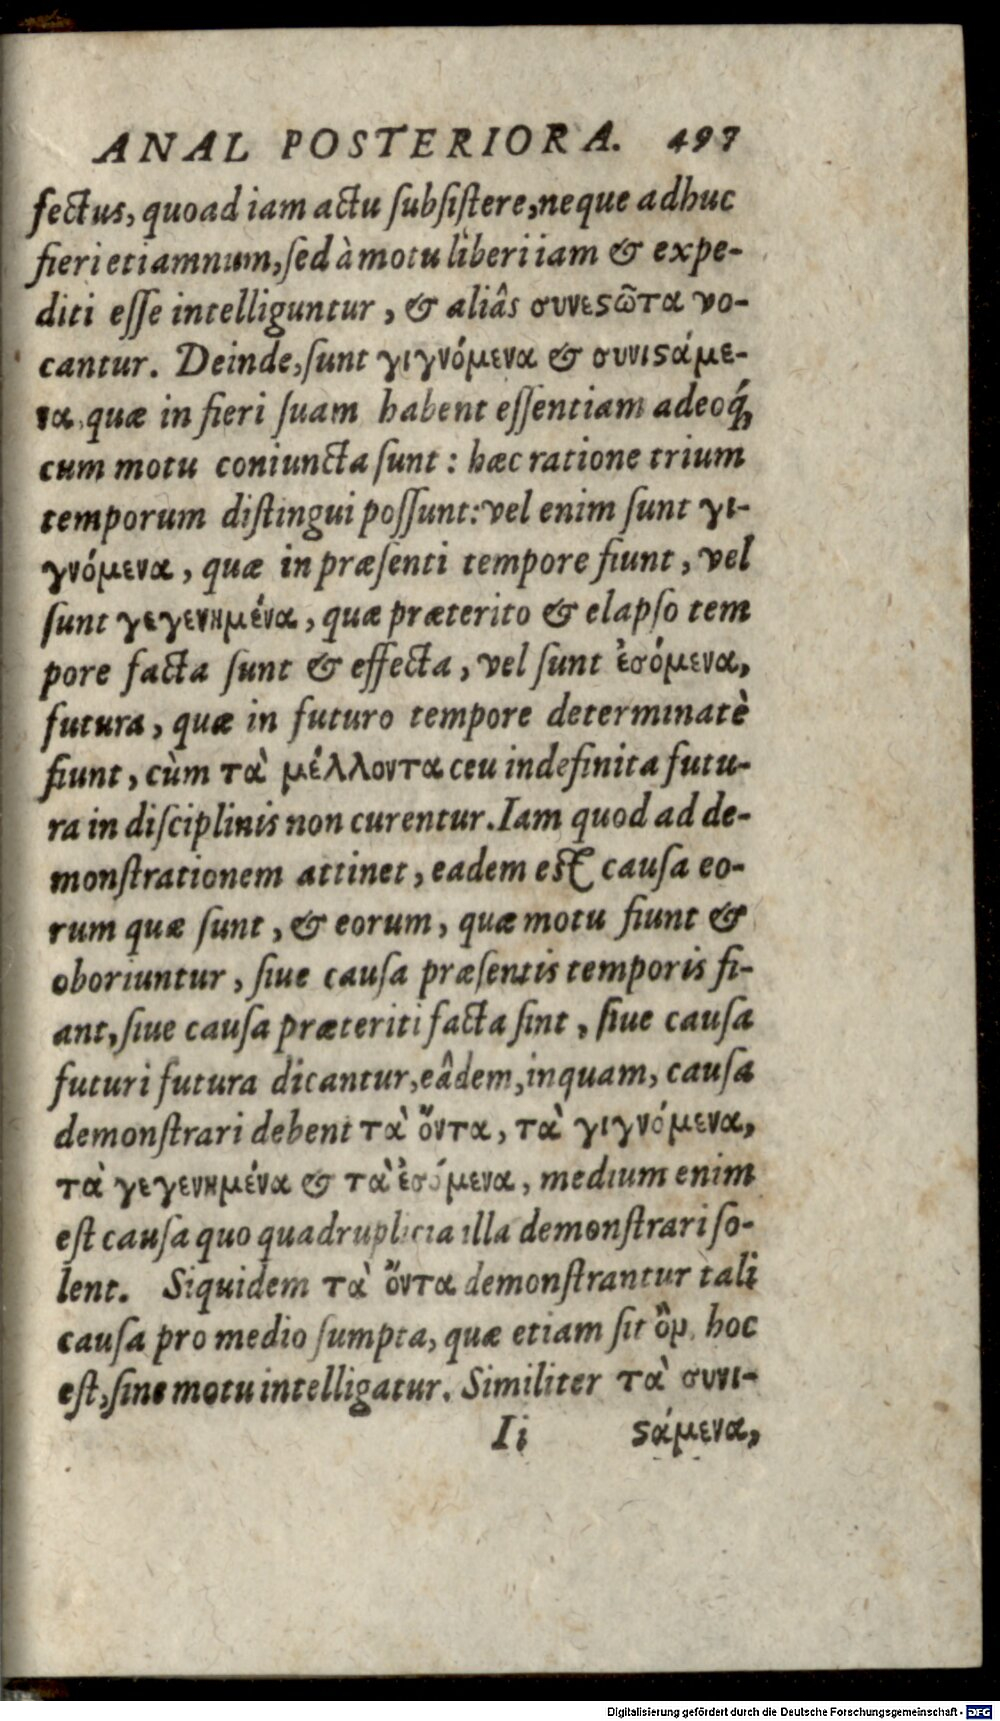 ANAL POSTERIORA. 497
fectus, quoad iam actu ſubſiſtere, neque adhuc
fieri etiamnum, ſed à motu liberi iam & expe-
diti eſſe intelliguntur, & aliâs συνεϛῶτα vo-
cantur. Deinde, ſunt γιγνόμενα & συνιϛάμε-
να, quæ in fieri ſuam habent eſſentiam adeoq́;
cum motu coniuncta ſunt: hæc ratione trium
temporum diſtingui poſſunt: vel enim ſunt γι-
γνόμενα, quæ in præſenti tempore fiunt, vel
ſunt γεγενημένα, quæ præterito & elapſo tem
pore facta ſunt & effecta, vel ſunt ἐσόμενα,
futura, quæ in futuro tempore determinatè
fiunt, cùm τὰ μέλλοντα ceu indefinita futu-
ra in diſciplinis non curentur. Iam quod ad de-
monſtrationem attinet, eadem eſt cauſa eo-
rum quæ ſunt, & eorum, quæ motu fiunt &
oboriuntur, ſiue cauſa præſentis temporis fi-
ant, ſiue cauſa præteriti facta ſint, ſiue cauſa
futuri futura dicantur, eâdem, inquam, cauſa
demonſtrari debent τὰ ὄντα, τὰ γιγνόμενα,
τὰ γεγενημένα & τὰ ἐσόμενα, medium enim
eſt cauſa quo quadruplicia illa demonſtrari ſo-
lent. Siquidem τὰ ὄντα demonſtrantur tali
cauſa pro medio ſumpta, quæ etiam ſit ὂν, hoc
eſt, ſine motu intelligatur. Similiter τὰ συνι-
Ii ϛάμενα,
Digitalisierung gefördert durch die Deutsche Forschungsgemeinschaft - DFG